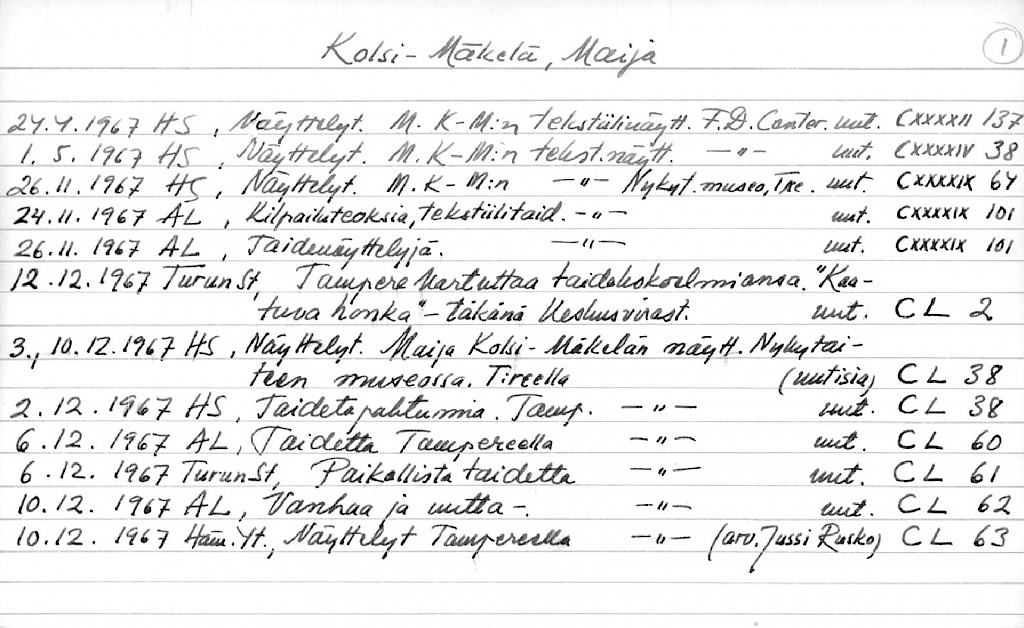 Kolsi-Mäkelä, Maija 1
24.4.1967 HS, Näyttelyt. M. K-M:n tekstiilinäytt. F.D.Canter. uut. CXXXXII 137
1.5.1967 HS, Näyttelyt. M. K-M:n tekst.näytt. -"- uut. CXXXXIV 38
26.11.1967 HS, Näyttelyt. M. K-M:n -"- Nykyt.museo, Tre. uut. CXXXXIX 64
24.11.1967 AL, Kilpailuteoksia, tekstiilitaid. -"- uut. CXXXXIX 101
26.11.1967 AL, Taidenäyttelyjä. -"- uut. CXXXXIX 101
12.12.1967 TurunSt, Tampere kartuttaa taidekokoelmiansa. "Kaa-
tuva honka" - täkänä Keskusvirast. uut. CL 2
3., 10.12.1967 HS, Näyttelyt. Maija Kolsi-Mäkelän näytt. Nykytai-
teen museossa. T:reella (uutisia) CL 38
2.12.1967 HS, Taidetapahtumia. Tamp. -"- uut. CL 38
6.12.1967 AL, Taidetta Tampereella -"- uut. CL 60
6.12.1967 TurunSt, Paikallista taidetta -"- uut. CL 61
10.12.1967 AL, Vanhaa ja uutta -. -"- uut. CL 62
10.12.1967 Häm.Yt., Näyttelyt Tampereella -"- (arv. Jussi Rusko) CL 63